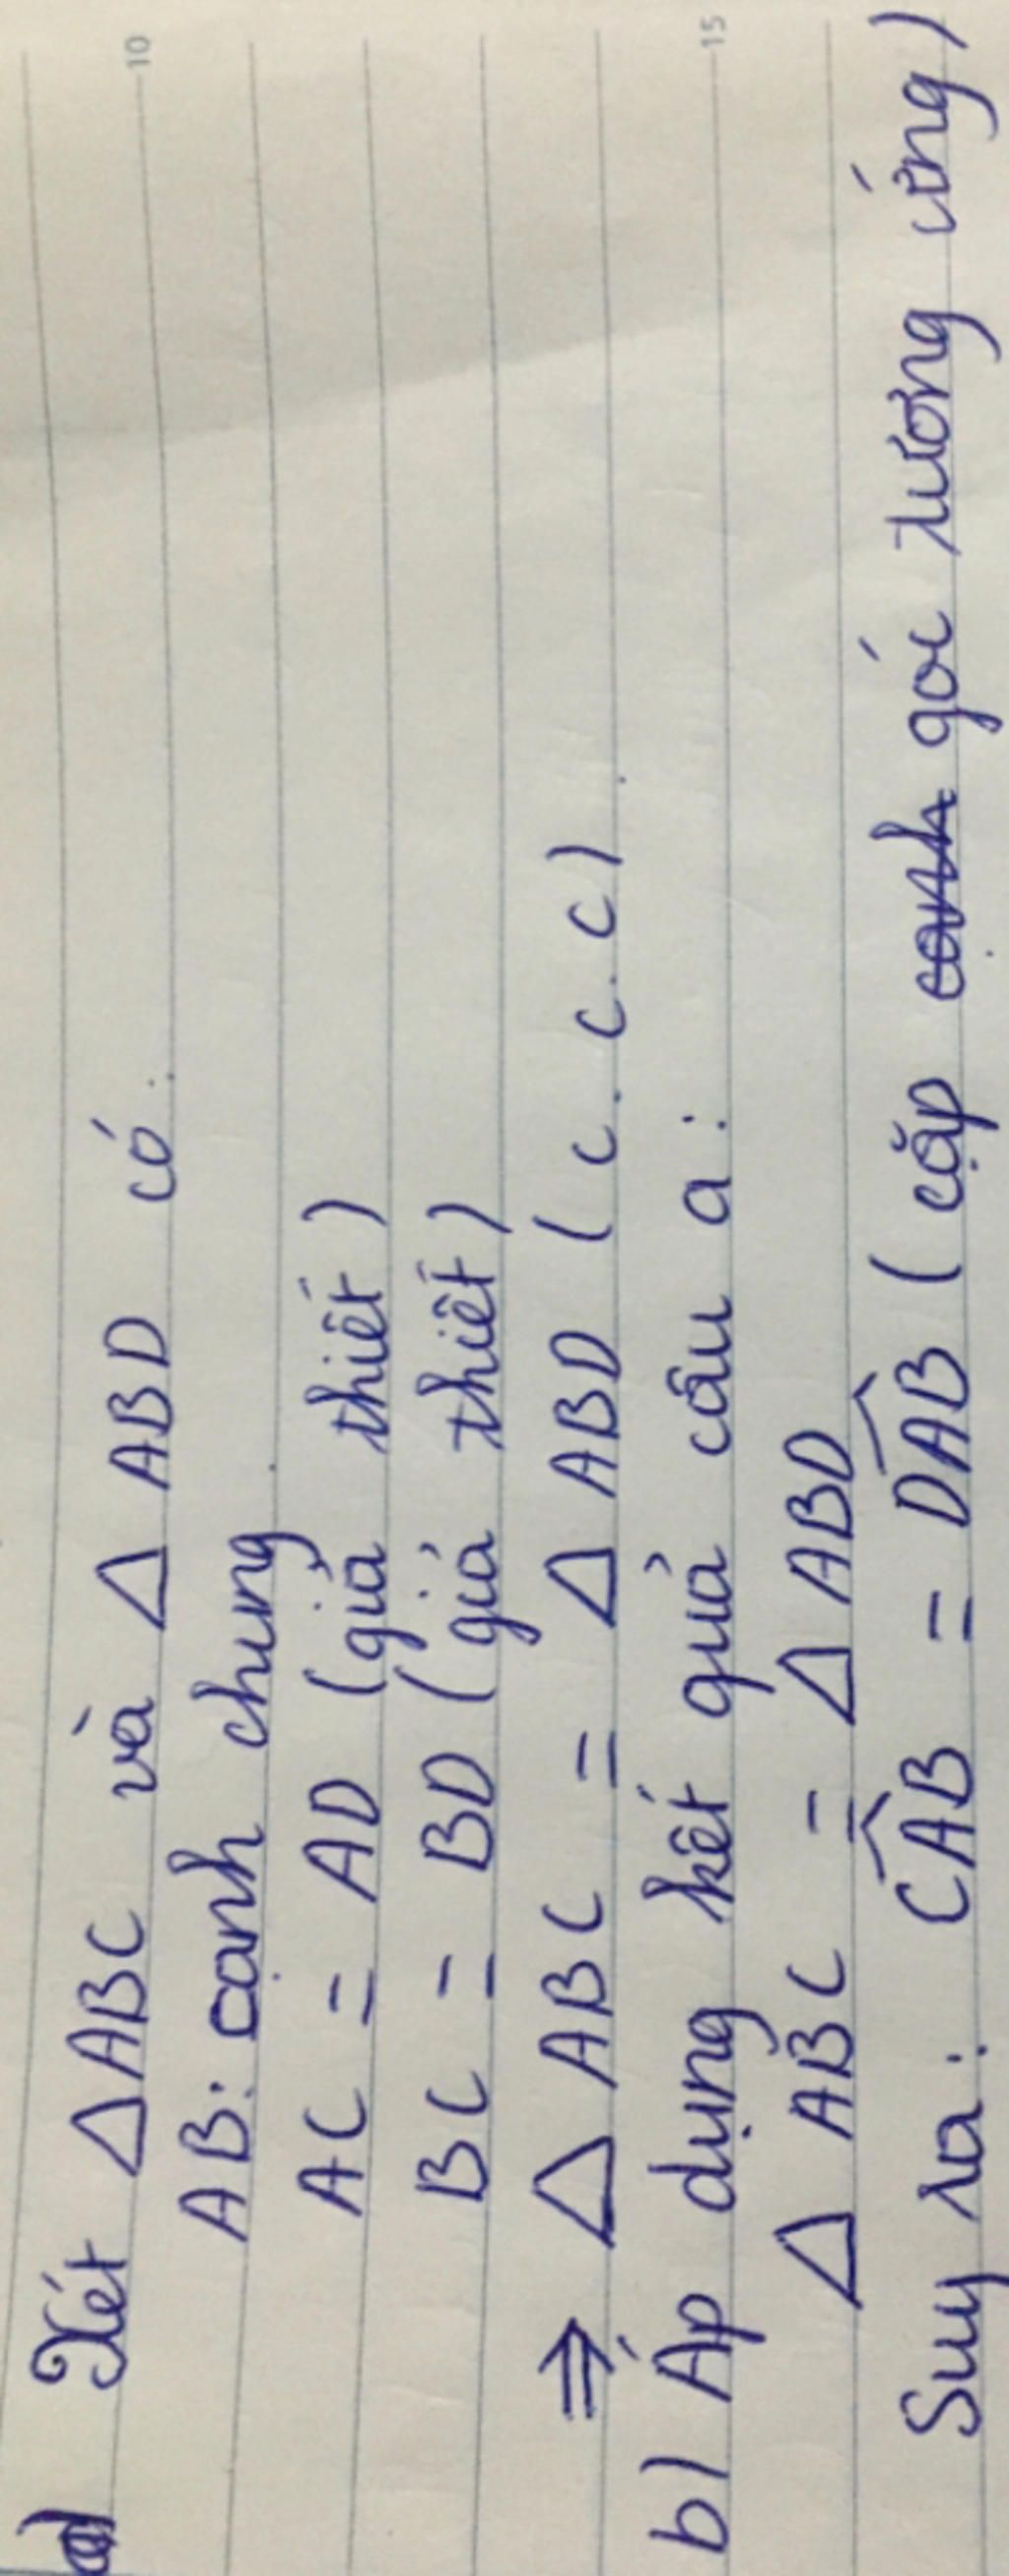 a) Xét ΔABC và Δ ABD có:
AB: cạnh chung
AC = AD (giả thiết)
BC = BD (giả thiết)
⇒ Δ ABC = Δ ABD (c.c.c)
b) Áp dụng kết quả câu a:
Δ ABC = Δ ABD
Suy ra: \widehat{CAB} = \widehat{DAB} (cặp cạnh góc tương ứng)
10
15